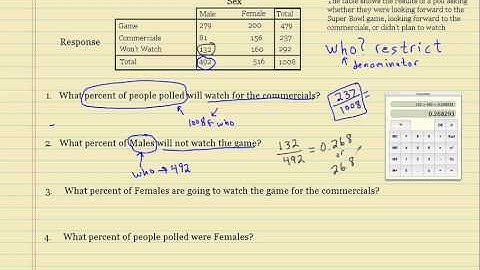 Sex
Male Female Total
Game 279 200 479
Commercials 81 156 237
Won't Watch 132 160 292
Total 492 516 1008
Response
The table shows the results of a poll asking
whether they were looking forward to the
Super Bowl game, looking forward to the
commercials, or didn't plan to watch
who? restrict
denominator
1. What percent of people polled will watch for the commercials?
232
1008 =
1008 ← who
0.268293
2. What percent of Males will not watch the game?
who → 492
132
492 = 0.268
or
26.8
3. What percent of Females are going to watch the game for the commercials?
4. What percent of people polled were Females?